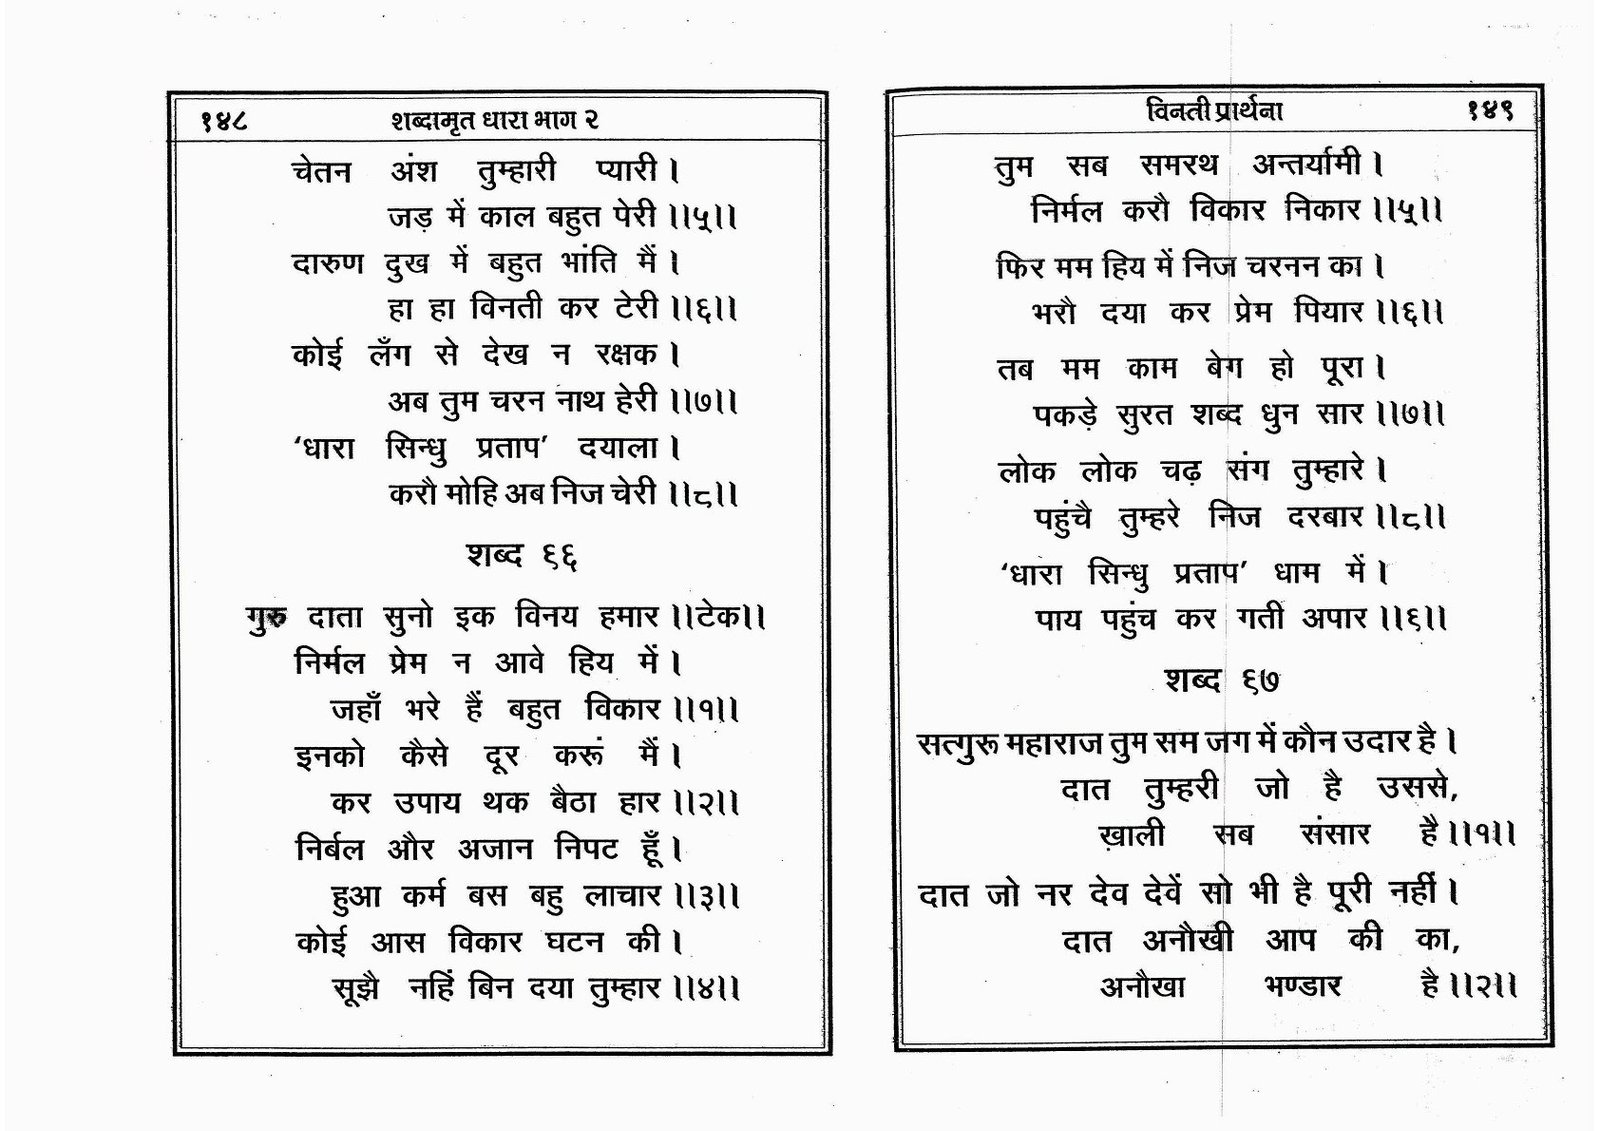 १४८ शब्दामृत धारा भाग २
चेतन अंश तुम्हारी प्यारी ।
जड़ में काल बहुत पेरी ।।५।।
दारुण दुख में बहुत भांति मैं ।
हा हा विनती कर टेरी ।।६।।
कोई लँग से देख न रक्षक ।
अब तुम चरन नाथ हेरी ।।७।।
‘धारा सिन्धु प्रताप’ दयाला ।
करौ मोहि अब निज चेरी ।।८।।
शब्द ६६
गुरु दाता सुनो इक विनय हमार ।।टेक।।
निर्मल प्रेम न आवे हिय में ।
जहाँ भरे हैं बहुत विकार ।।१।।
इनको कैसे दूर करूं मैं ।
कर उपाय थक बैठा हार ।।२।।
निर्बल और अजान निपट हूँ ।
हुआ कर्म बस बहु लाचार ।।३।।
कोई आस विकार घटन की ।
सूझै नहिं बिन दया तुम्हार ।।४।।
विनती प्रार्थना १४९
तुम सब समरथ अन्तर्यामी ।
निर्मल करौ विकार निकार ।।५।।
फिर मम हिय में निज चरनन का ।
भरौ दया कर प्रेम पियार ।।६।।
तब मम काम बेग हो पूरा ।
पकड़े सुरत शब्द धुन सार ।।७।।
लोक लोक चढ़ संग तुम्हारे ।
पहुंचै तुम्हरे निज दरबार ।।८।।
‘धारा सिन्धु प्रताप’ धाम में ।
पाय पहुंच कर गती अपार ।।६।।
शब्द ६७
सत्गुरू महाराज तुम सम जग में कौन उदार है ।
दात तुम्हरी जो है उससे,
ख़ाली सब संसार है ।।१।।
दात जो नर देव देवें सो भी है पूरी नहीं ।
दात अनौखी आप की का,
अनौखा भण्डार है ।।२।।